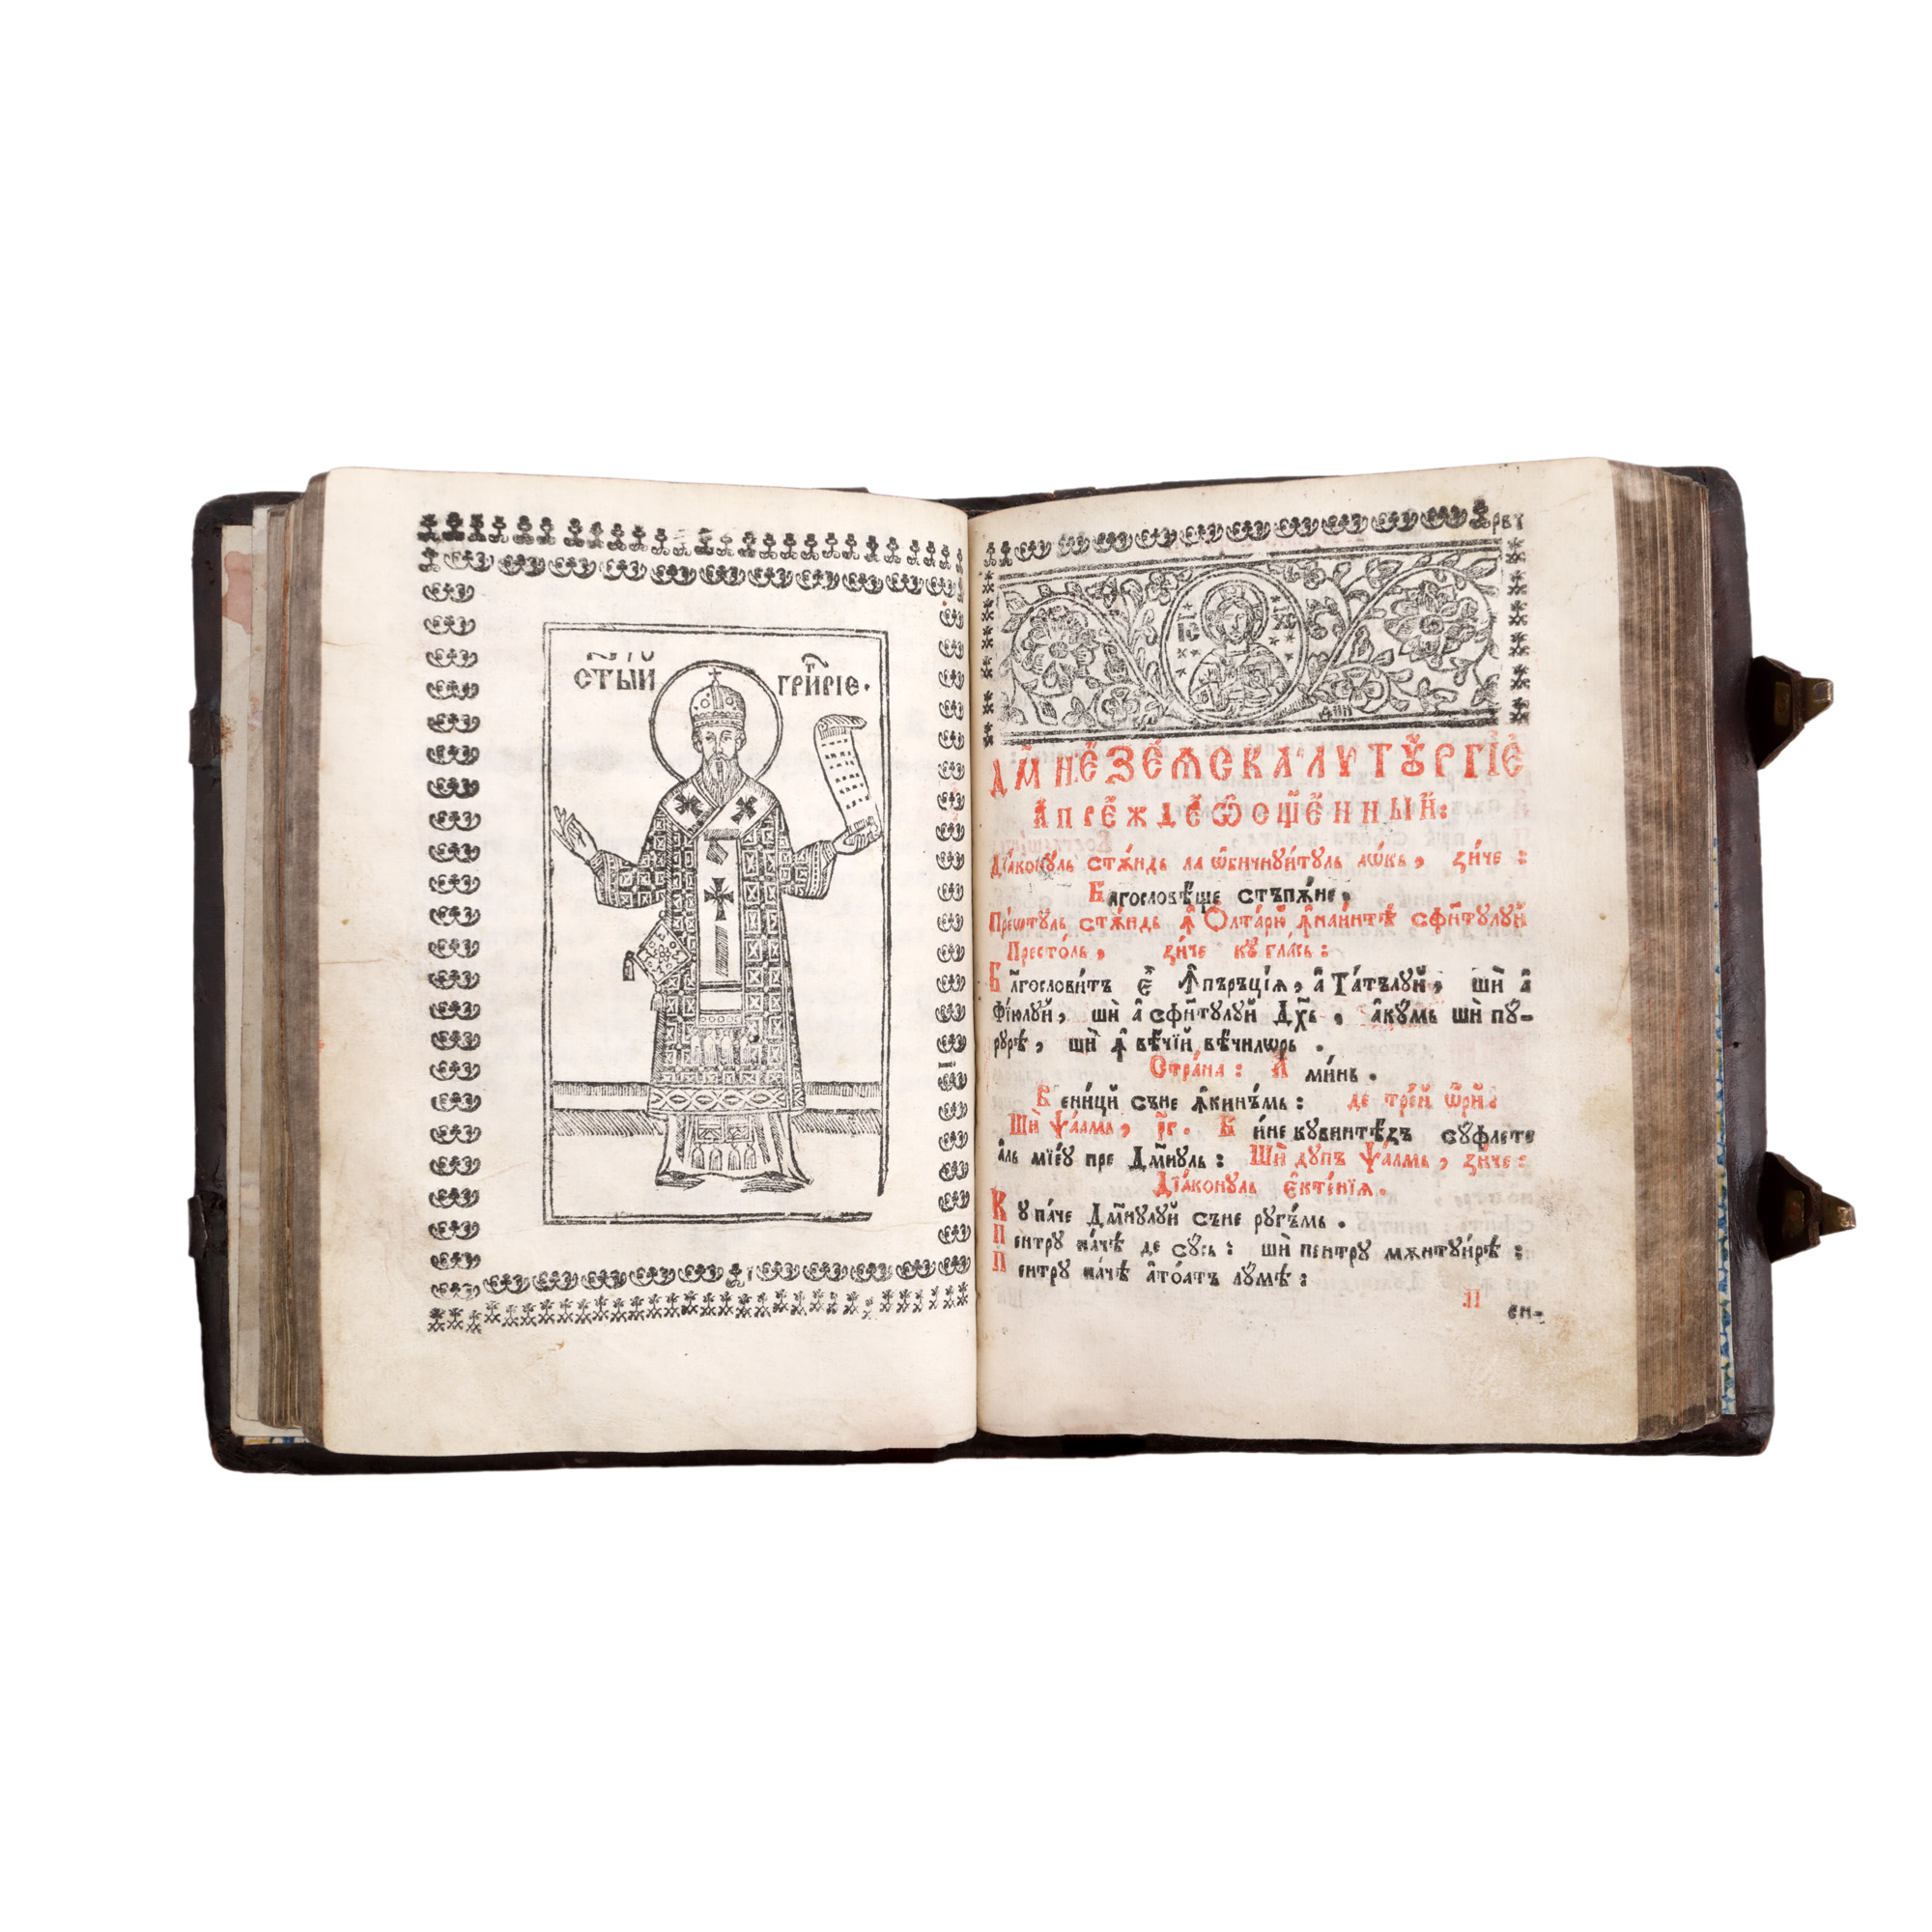 СТ҃ЫЙ ГРИ҃РІЕ·
рв҃і
ІС ХС
Д҃МНЕЗЕѦСКА ЛУТꙊРГІЕ
АПРЕЖДЕѠСЩ҃ЕННЫЙ:
Дїаконꙋль стѫндь ла ѡбичнꙋитꙋль лѡкь, зиче :
Благословѣще стъпѫне,
Преѡтꙋль стѫндь ꙟ Олтарю ꙟнаинтѣ сфи҃тꙋлꙋй
Престоль, зиче кꙋ гласъ :
Бл҃гословитъ е҆ ꙟпъръція, а Татълꙋй, шѝ а
Фіюлꙋй, шѝ а сфи҃тꙋлꙋй Дх҃ь, акꙋмь шѝ пꙋ-
рꙋрѣ, шѝ ꙟ вѣчїй вѣчилѡрь .
Страна : Аминь .
Вениций съне ꙟкинъмь : де трей ѡ҆рй :
Шѝ Ѱаамь, р҃г. Бине кꙋвинтѣзъ сꙋфлете
аль мїеꙋ пре Дм҃нꙋль : Шѝ дꙋпъ Ѱалмь, зиче :
Дїаконꙋль Ектенїѧ.
Кꙋ паче Дм҃нꙋлꙋй съне рꙋгъмь .
Пентрꙋ пачѣ де сꙋсь : шѝ пентрꙋ мѫнтꙋирѣ :
Пентрꙋ пачѣ атоатъ лꙋмѣ :
П
ен-